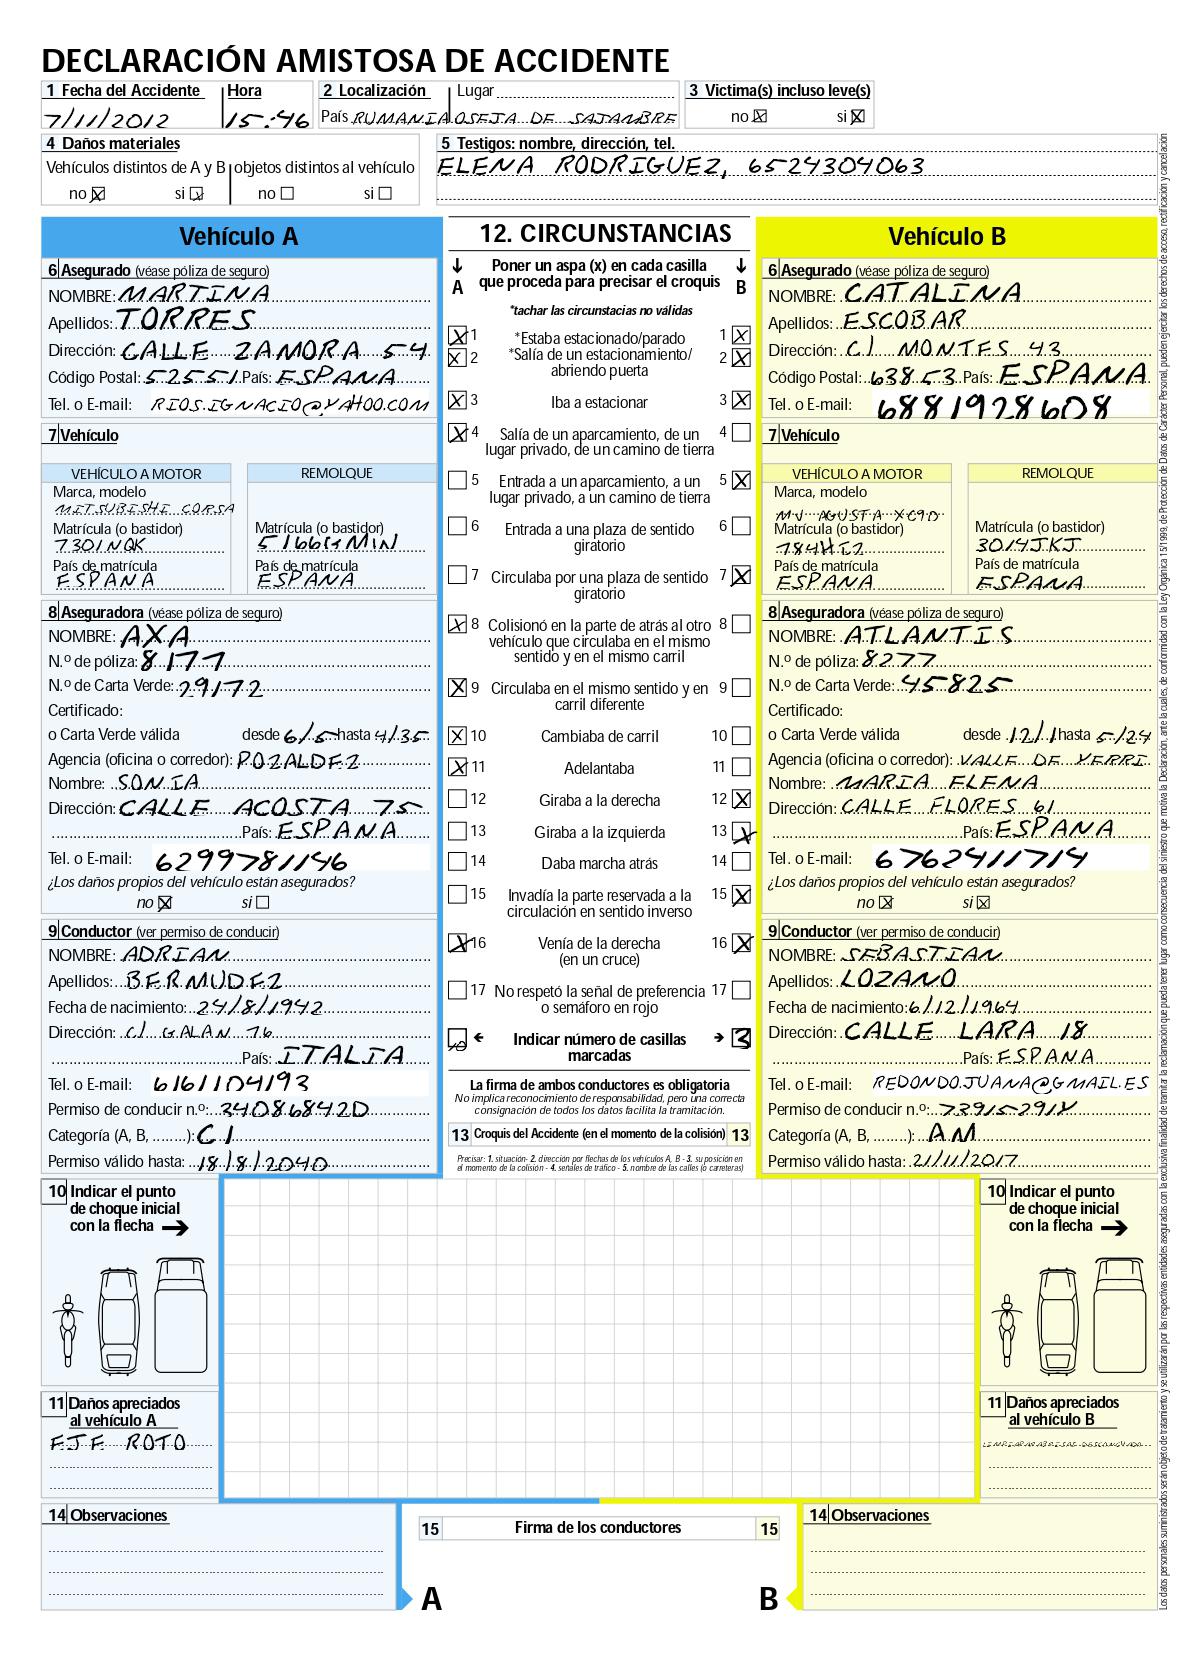 DECLARACIÓN AMISTOSA DE ACCIDENTE
1 Fecha del Accidente Hora 2 Localización Lugar 3 Victima(s) incluso leve(s)
7/11/2012 15:46 País RUMANIA OSEJA DE SAJAMBRE no X si X
4 Daños materiales 5 Testigos: nombre, dirección, tel.
Vehículos distintos de A y B objetos distintos al vehículo ELENA RODRIGUEZ, 6524304063
no X si X no si
Vehículo A
6 Asegurado (véase póliza de seguro)
NOMBRE: MARTINA
Apellidos: TORRES
Dirección: CALLE ZAMORA 54
Código Postal: 52551 País: ESPANA
Tel. o E-mail: RIOS.IGNACIO@YAHOO.COM
7 Vehículo
VEHÍCULO A MOTOR REMOLQUE
Marca, modelo
MITSUBISHI CORSA
Matrícula (o bastidor) Matrícula (o bastidor)
7301NQK 5166GMIN
País de matrícula País de matrícula
ESPANA ESPANA
8 Aseguradora (véase póliza de seguro)
NOMBRE: AXA
N.º de póliza: 8177
N.º de Carta Verde: 29172
Certificado:
o Carta Verde válida desde 6/5 hasta 4/35
Agencia (oficina o corredor): POZALDEZ
Nombre: SONIA
Dirección: CALLE ACOSTA 75
País: ESPANA
Tel. o E-mail: 6299781146
¿Los daños propios del vehículo están asegurados?
no X si
9 Conductor (ver permiso de conducir)
NOMBRE: ADRIAN
Apellidos: BERMUDEZ
Fecha de nacimiento: 24/8/1942
Dirección: C/ GALAN 76
País: ITALIA
Tel. o E-mail: 6161104193
Permiso de conducir n.º: 34086842D
Categoría (A, B, ........): C1
Permiso válido hasta: 18/8/2040
10 Indicar el punto
de choque inicial
con la flecha
11 Daños apreciados
al vehículo A
EJE ROTO
14 Observaciones
12. CIRCUNSTANCIAS
Poner un aspa (x) en cada casilla
que proceda para precisar el croquis
A B
*tachar las circunstacias no válidas
X 1 *Estaba estacionado/parado 1 X
X 2 *Salía de un estacionamiento/ 2 X
abriendo puerta
X 3 Iba a estacionar 3 X
X 4 Salía de un aparcamiento, de un 4
lugar privado, de un camino de tierra
5 Entrada a un aparcamiento, a un 5 X
lugar privado, a un camino de tierra
6 Entrada a una plaza de sentido 6
giratorio
7 Circulaba por una plaza de sentido 7 X
giratorio
X 8 Colisionó en la parte de atrás al otro 8
vehículo que circulaba en el mismo
sentido y en el mismo carril
X 9 Circulaba en el mismo sentido y en 9
carril diferente
X 10 Cambiaba de carril 10
X 11 Adelantaba 11
12 Giraba a la derecha 12 X
13 Giraba a la izquierda 13 X
14 Daba marcha atrás 14
15 Invadía la parte reservada a la 15 X
circulación en sentido inverso
X 16 Venía de la derecha 16 X
(en un cruce)
17 No respetó la señal de preferencia 17
o semáforo en rojo
10 Indicar número de casillas 3
marcadas
La firma de ambos conductores es obligatoria
No implica reconocimiento de responsabilidad, pero una correcta
consignación de todos los datos facilita la tramitación.
13 Croquis del Accidente (en el momento de la colisión) 13
Precisar: 1. situación- 2. dirección por flechas de los vehículos A, B - 3. su posición en
el momento de la colisión - 4. señales de tráfico - 5. nombre de las calles (o carreteras)
15 Firma de los conductores 15
A B
Vehículo B
6 Asegurado (véase póliza de seguro)
NOMBRE: CATALINA
Apellidos: ESCOBAR
Dirección: C/ MONTES 43
Código Postal: 63853 País: ESPANA
Tel. o E-mail: 6881928608
7 Vehículo
VEHÍCULO A MOTOR REMOLQUE
Marca, modelo
MV AGUSTA XC90
Matrícula (o bastidor) Matrícula (o bastidor)
784HIZ 3014JKJ
País de matrícula País de matrícula
ESPANA ESPANA
8 Aseguradora (véase póliza de seguro)
NOMBRE: ATLANTIS
N.º de póliza: 8277
N.º de Carta Verde: 45825
Certificado:
o Carta Verde válida desde 12/1 hasta 5/24
Agencia (oficina o corredor): VALLE DE YERRI
Nombre: MARIA ELENA
Dirección: CALLE FLORES 61
País: ESPANA
Tel. o E-mail: 6762411714
¿Los daños propios del vehículo están asegurados?
no X si X
9 Conductor (ver permiso de conducir)
NOMBRE: SEBASTIAN
Apellidos: LOZANO
Fecha de nacimiento: 6/12/1964
Dirección: CALLE LARA 18
País: ESPANA
Tel. o E-mail: REDONDOJUANA@GMAIL.ES
Permiso de conducir n.º: 73915291X
Categoría (A, B, ........): AM
Permiso válido hasta: 21/11/2017
10 Indicar el punto
de choque inicial
con la flecha
11 Daños apreciados
al vehículo B
LIMPIAPARABRISAS DESCOLGADO
14 Observaciones
Los datos personales suministrados serán objeto de tratamiento y se utilizarán por las respectivas entidades aseguradas con la exclusiva finalidad de tramitar la reclamación que pueda tener lugar como consecuencia del siniestro que motiva la Declaración, ante la cuales, de conformidad con la Ley Orgánica 15/1999, de Protección de Datos de Carácter Personal, pueden ejercitar los derechos de acceso, rectificación y cancelación